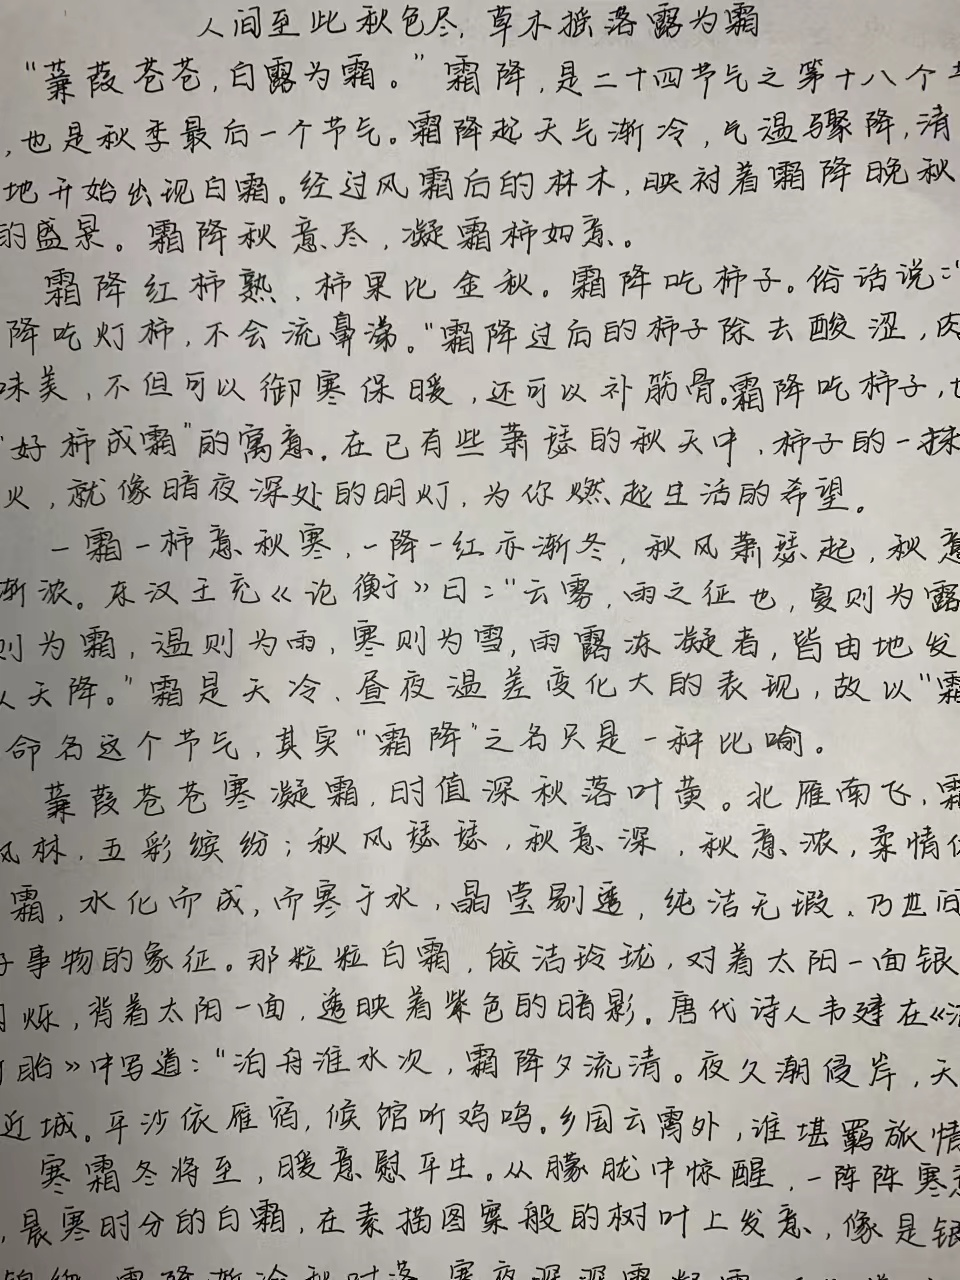 人间至此秋色尽,草木摇落露为霜
“蒹葭苍苍,白露为霜。”霜降,是二十四节气之第十八个
,也是秋季最后一个节气。霜降起天气渐冷,气温骤降,清
地开始出现白霜。经过风霜后的林木,映衬着霜降晚秋
的盛景。霜降秋意尽,凝霜柿如意。
霜降红柿熟,柿果比金秋。霜降吃柿子。俗话说:“
降吃灯柿,不会流鼻涕。“霜降过后的柿子除去酸涩,肉
味美,不但可以御寒保暖,还可以补筋骨。霜降吃柿子,也
“好柿成霜”的寓意。在已有些萧瑟的秋天中,柿子的一抹
火,就像暗夜深处的明灯,为你燃起生活的希望。
一霜一柿意秋寒,一降一红亦渐冬,秋风萧瑟起,秋意
渐浓。东汉王充《论衡》曰:“云雾,雨之征也,夏则为露
则为霜,温则为雨,寒则为雪,雨露冻凝者,皆由地发
从天降。”霜是天冷、昼夜温差变化大的表现,故以“霜
命名这个节气,其实“霜降”之名只是一种比喻。
蒹葭苍苍寒凝霜,时值深秋落叶黄。北雁南飞,霜
风林,五彩缤纷;秋风瑟瑟,秋意深,秋意浓,柔情似
霜,水化而成,而寒于水,晶莹剔透,纯洁无瑕、乃世间
好事物的象征。那粒粒白霜,皎洁玲珑,对着太阳一面银
闪烁,背着太阳一面,透映着紫色的暗影。唐代诗人韦建在《泊
盱眙》中写道:“泊舟淮水次,霜降夕流清。夜久潮侵岸,天
近城。平沙依雁宿,候馆听鸡鸣。乡国云霄外,谁堪羁旅情
寒霜冬将至,暖意慰平生。从朦胧中惊醒,一阵阵寒意
,晨寒时分的白霜,在素描图案般的树叶上发意,像是银